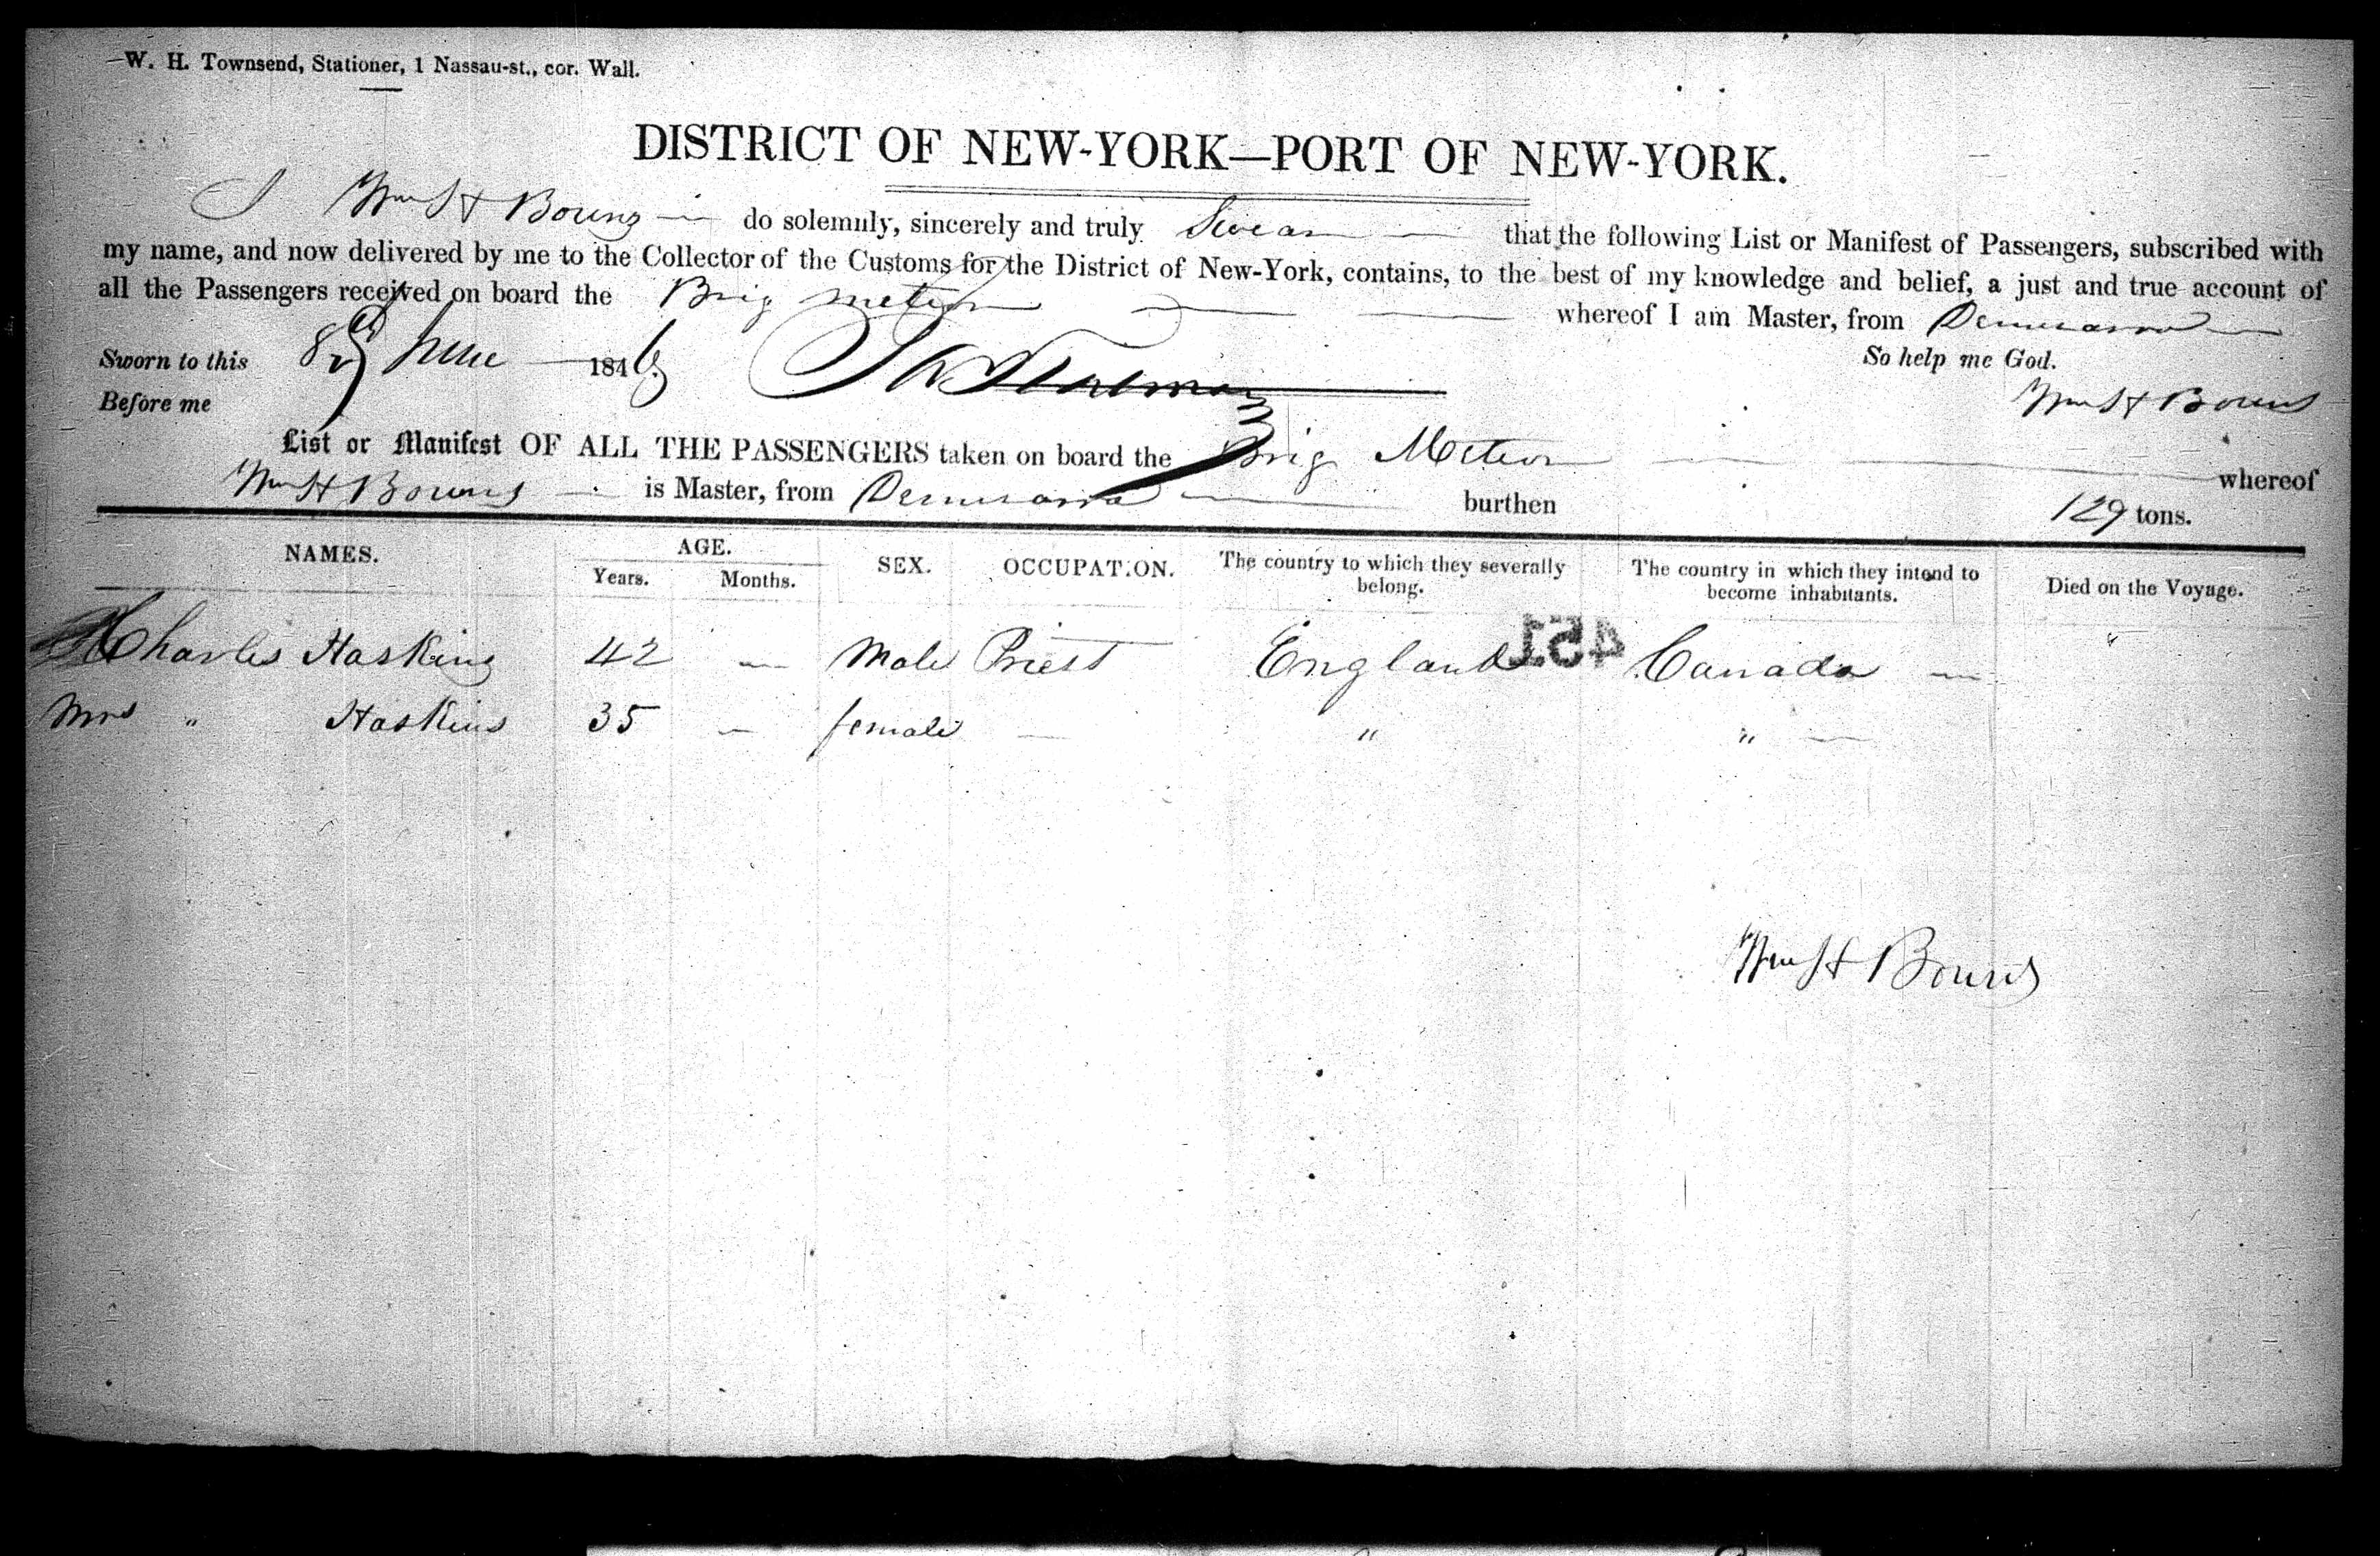 W. H. Townsend, Stationer, 1 Nassau-st., cor. Wall.
DISTRICT OF NEW-YORK—PORT OF NEW-YORK.
I Wm H Bouns do solemnly, sincerely and truly Swear that the following List or Manifest of Passengers, subscribed with
my name, and now delivered by me to the Collector of the Customs for the District of New-York, contains, to the best of my knowledge and belief, a just and true account of
all the Passengers received on board the Brig meteor whereof I am Master, from Demerara
Sworn to this 8th June 1846 So help me God.
Before me Wm H Bouns
List or Manifest OF ALL THE PASSENGERS taken on board the Brig Meteor whereof
Wm H Bouns is Master, from Demerara burthen 129 tons.
NAMES. AGE. SEX. OCCUPATION. The country to which they severally belong. The country in which they intend to become inhabitants. Died on the Voyage.
Years. Months.
Charles Haskins 42 — Male Priest England Canada — "
451
Mrs " Haskins 35 — female — " " —
Wm H Bouns